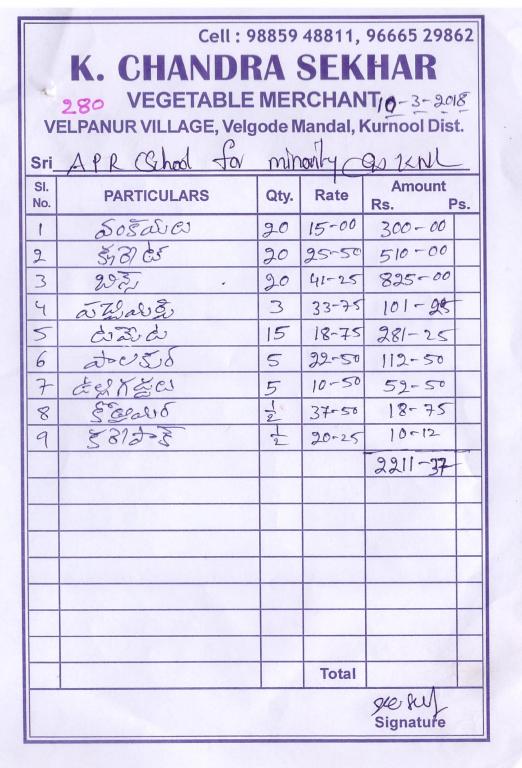 Cell : 98859 48811, 96665 29862
K. CHANDRA SEKHAR
280 VEGETABLE MERCHANT 10-3-2018
VELPANUR VILLAGE, Velgode Mandal, Kurnool Dist.
Sri APR School for minority KNL
Sl. No. PARTICULARS Qty. Rate Amount Rs. Ps.
1 వంకాయలు 20 15-00 300-00
2 క్యారెట్ 20 25-50 510-00
3 బిన్స్ 20 41-25 825-00
4 పచ్చిమిర్చి 3 33-75 101-25
5 టమేట 15 18-75 281-25
6 పాలకుర 5 22-50 112-50
7 ఉల్లిగడ్డలు 5 10-50 52-50
8 ½ 37-50 18-75
9 కరేపాక్ ½ 20-25 10-12
2211-37
Total
Signature